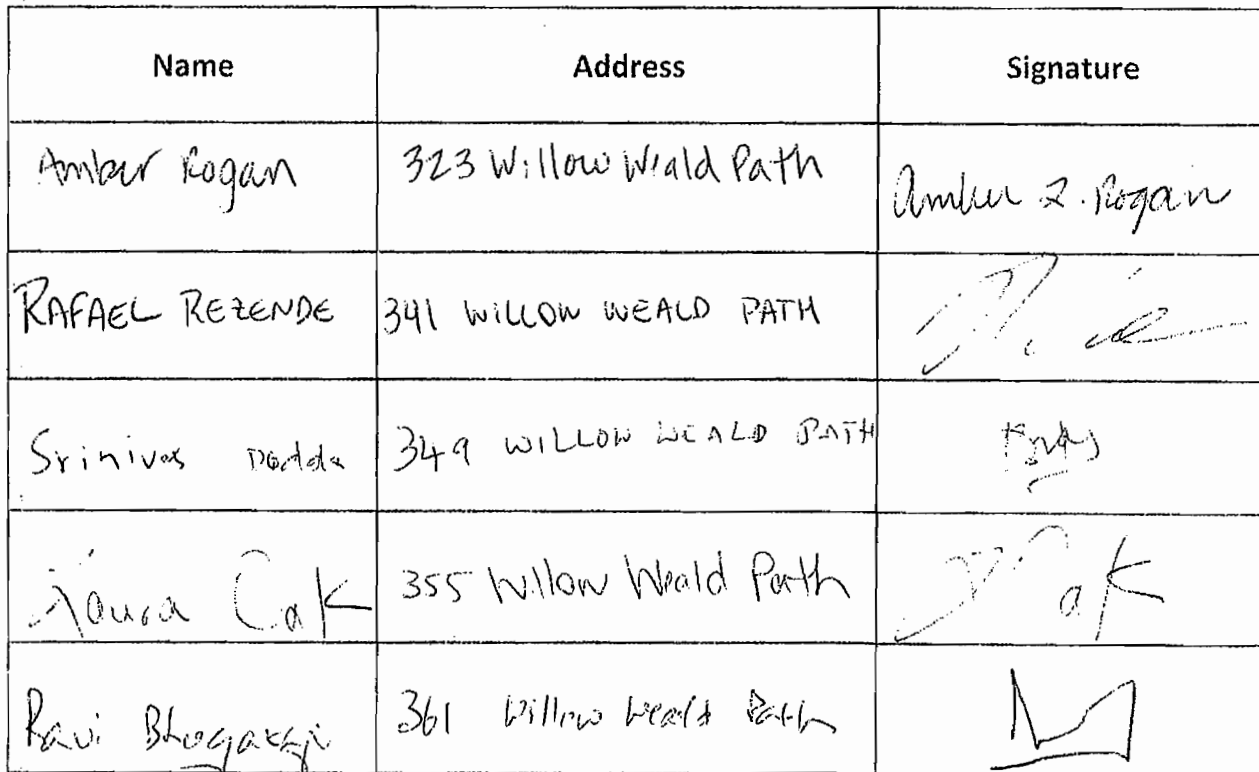 Name Address Signature
Amber Rogan 323 Willow Weald Path Amber L. Rogan
RAFAEL REZENDE 341 WILLOW WEALD PATH
Srinivas 349 WILLOW WEALD PATH
Laura Cak 355 Willow Weald Path
Ravi 361 Willow Weald Path